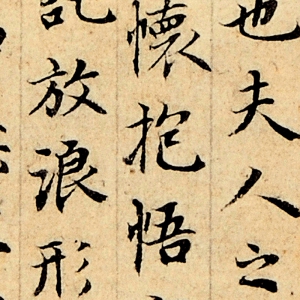 也夫人之
懷抱悟
託放浪形